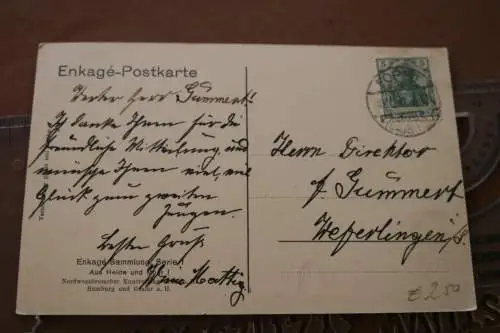 Enkagé-Postkarte
Werter Herr Gummert!
Ich danke Ihnen für die
freundliche Mitteilung und
wünsche Ihnen viel, viel
Glück zum zweiten
Jungen.
Besten Gruß
Enkagé-Sammlung Serie I
Aus Heide und
Nordwestdeutscher
Hamburg und
5 5
Herrn Direktor
f. Gummert
Weferlingen
€ 2.50